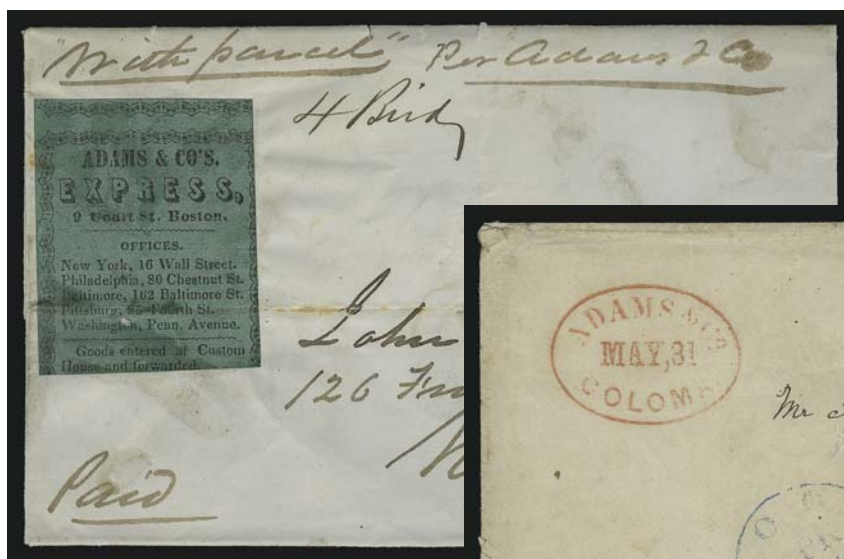 "With parcel" Per Adams & Co
4 Bird
ADAMS & CO'S.
EXPRESS,
9 Court St. Boston.
OFFICES.
New York, 16 Wall Street.
Philadelphia, 80 Chestnut St.
Baltimore, 162 Baltimore St.
Pittsburg, 85 Fourth St.
Washington, Penn. Avenue.
Goods entered at Custom
House and forwarded
John
126
Paid
ADAMS & CO
MAY, 31
COLOMA
Mr